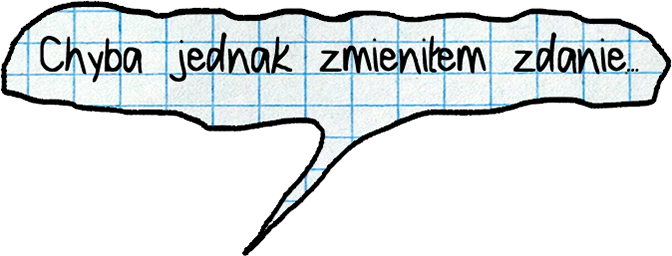 Chyba jednak zmieniłem zdanie...